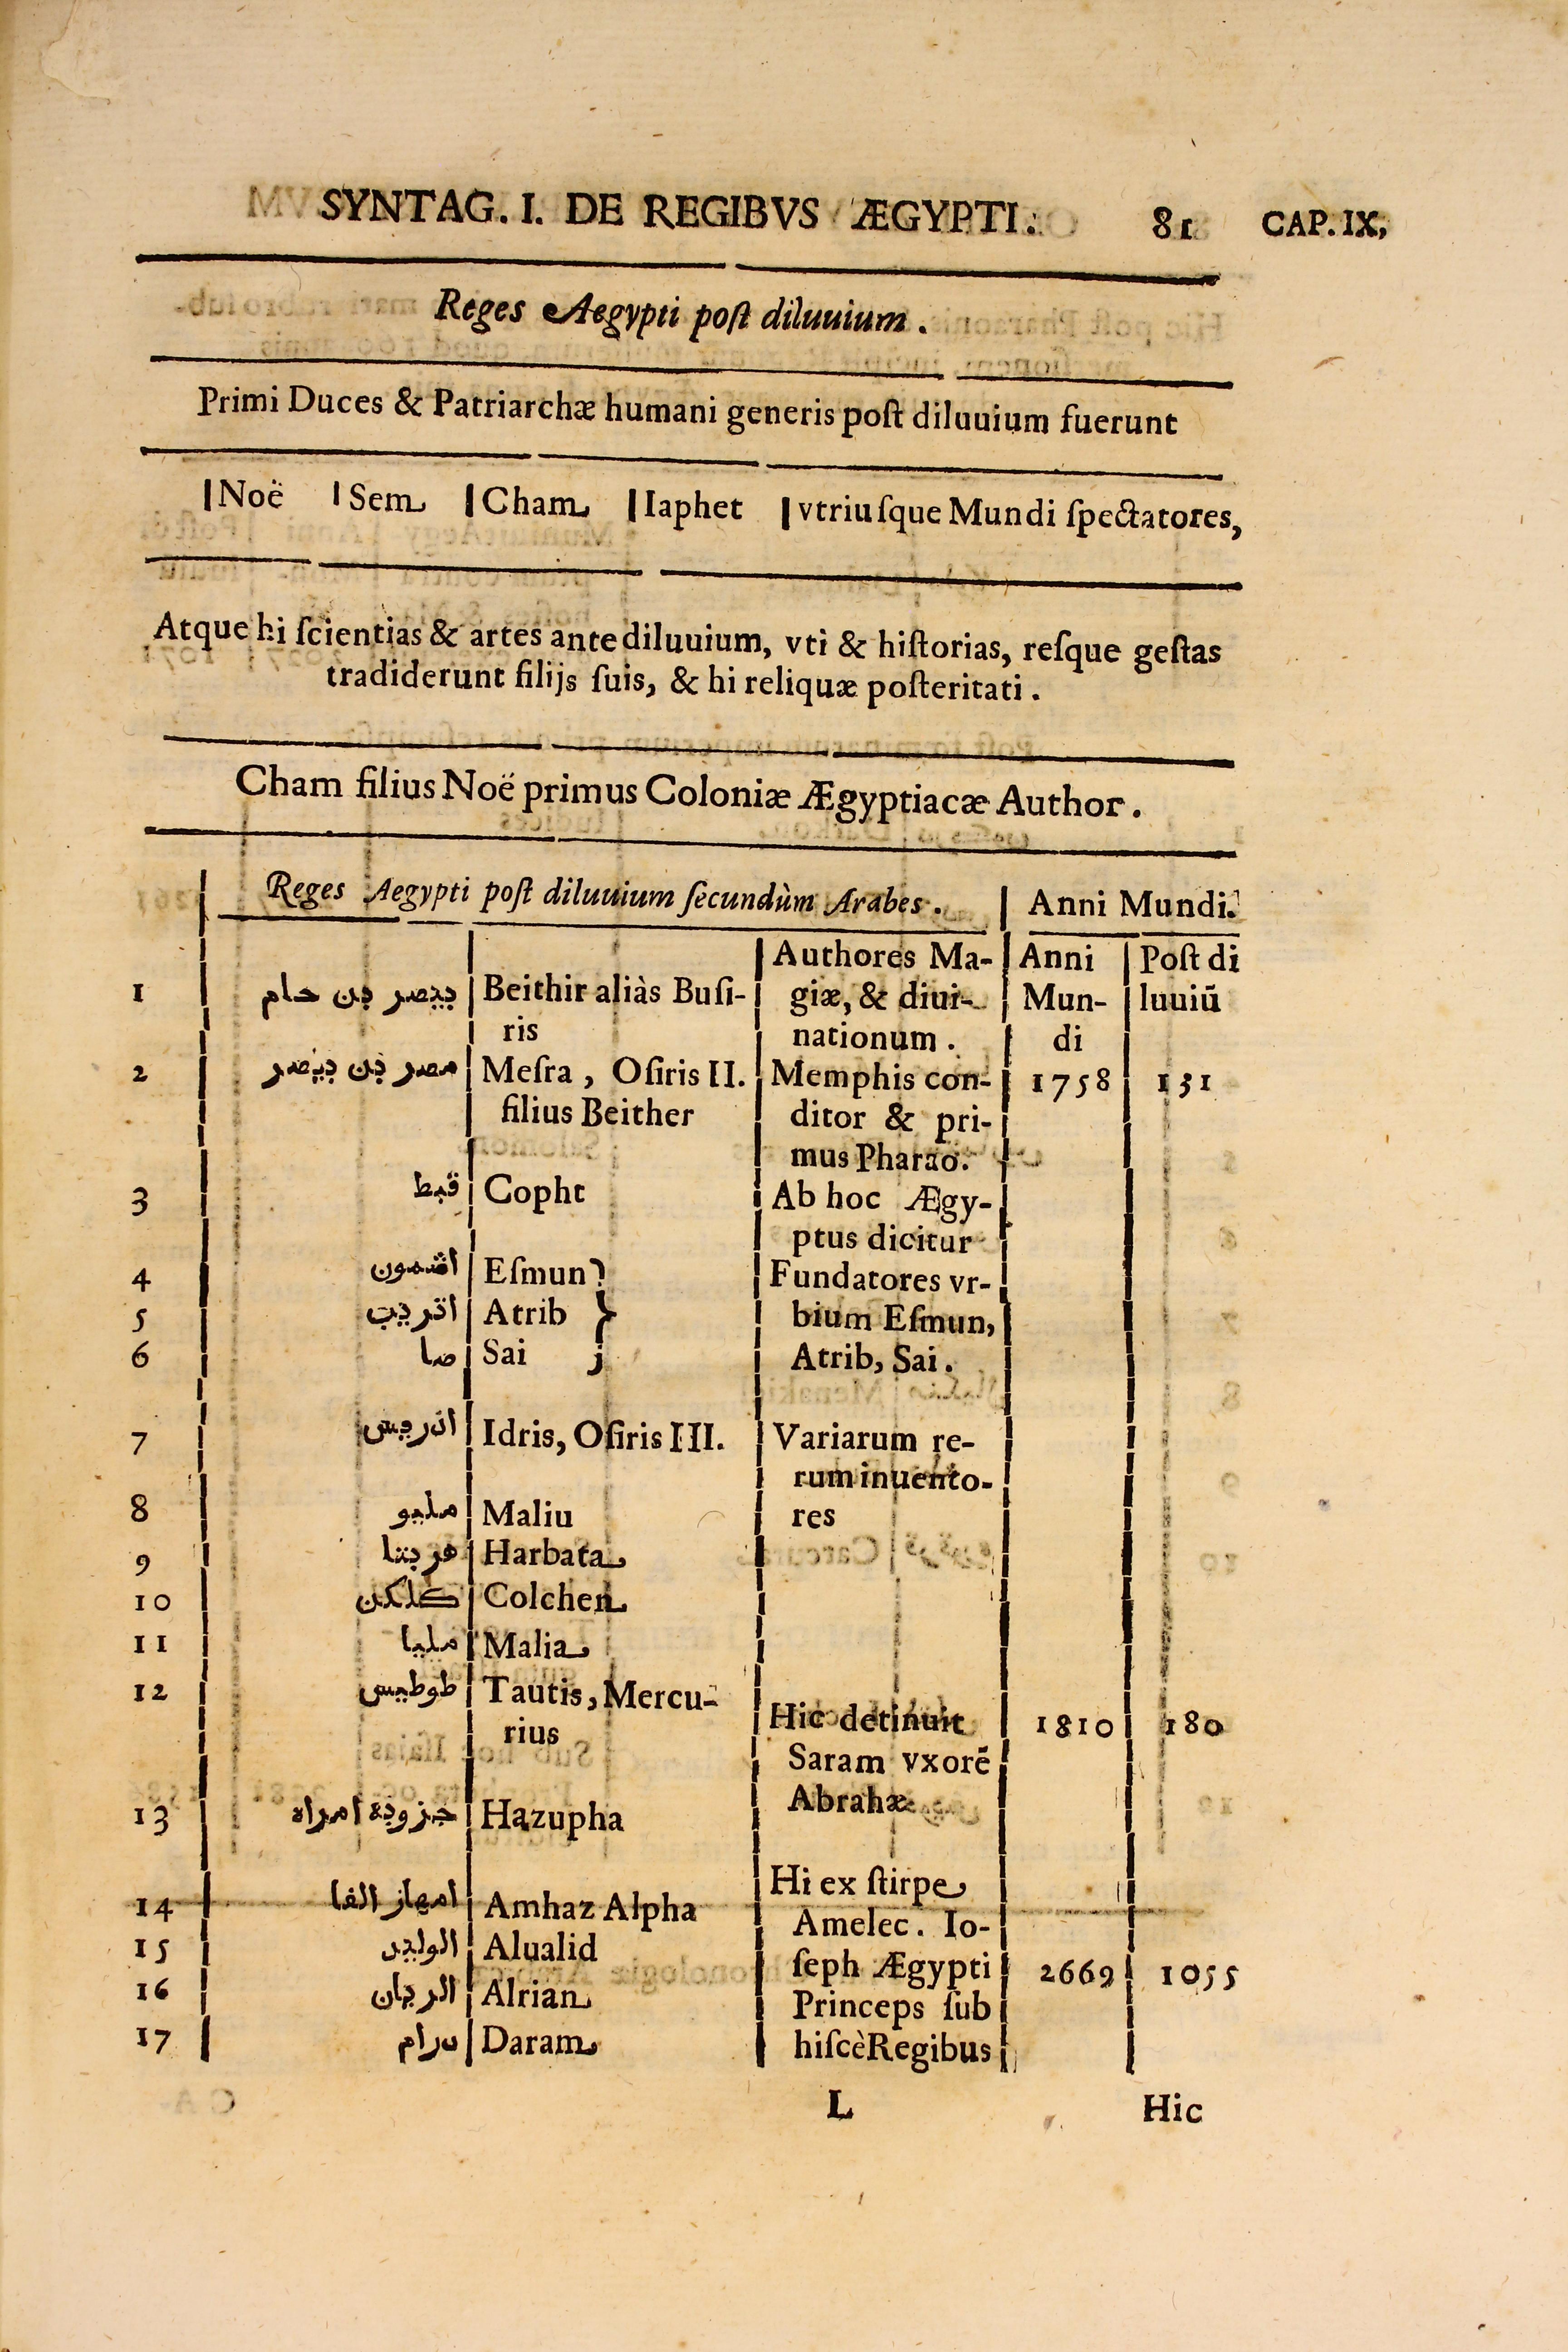 SYNTAG. I. DE REGIBVS ÆGYPTI. 81 CAP. IX,
Reges Aegypti poſt diluuium.
Primi Duces & Patriarchæ humani generis poſt diluuium fuerunt
Noë Sem Cham Iaphet vtriuſque Mundi ſpectatores,
Atque hi ſcientias & artes ante diluuium, vti & hiſtorias, reſque geſtas
tradiderunt filijs ſuis, & hi reliquæ poſteritati.
Cham filius Noë primus Coloniæ Ægyptiacæ Author.
Reges Aegypti poſt diluuium ſecundùm Arabes. Anni Mundi.
Authores Ma- Anni Poſt di
1 بيصر بن حام Beithir aliàs Buſi- giæ, & diui- Mun- luuiũ
ris nationum. di
2 مصر بن بيصر Meſra, Oſiris II. Memphis con- 1758 131
filius Beither ditor & pri-
mus Pharao.
3 قبط Copht Ab hoc Ægy-
ptus dicitur
4 اشمون Eſmun Fundatores vr-
5 اتريب Atrib bium Eſmun,
6 صا Sai Atrib, Sai.
7 ادريس Idris, Oſiris III. Variarum re-
rum inuento-
8 مليو Maliu res
9 هربتا Harbata
10 كلكن Colchen
11 مليا Malia
12 طوطيس Tautis, Mercu-
rius Hic detinuit 1810 180
Saram vxorẽ
13 امراه Hazupha Abrahæ
Hi ex ſtirpe
14 امهاز الفا Amhaz Alpha Amelec. Io-
15 الوليد Alualid ſeph Ægypti 2669 1055
16 الريان Alrian Princeps ſub
17 درام Daram hiſcè Regibus
L Hic